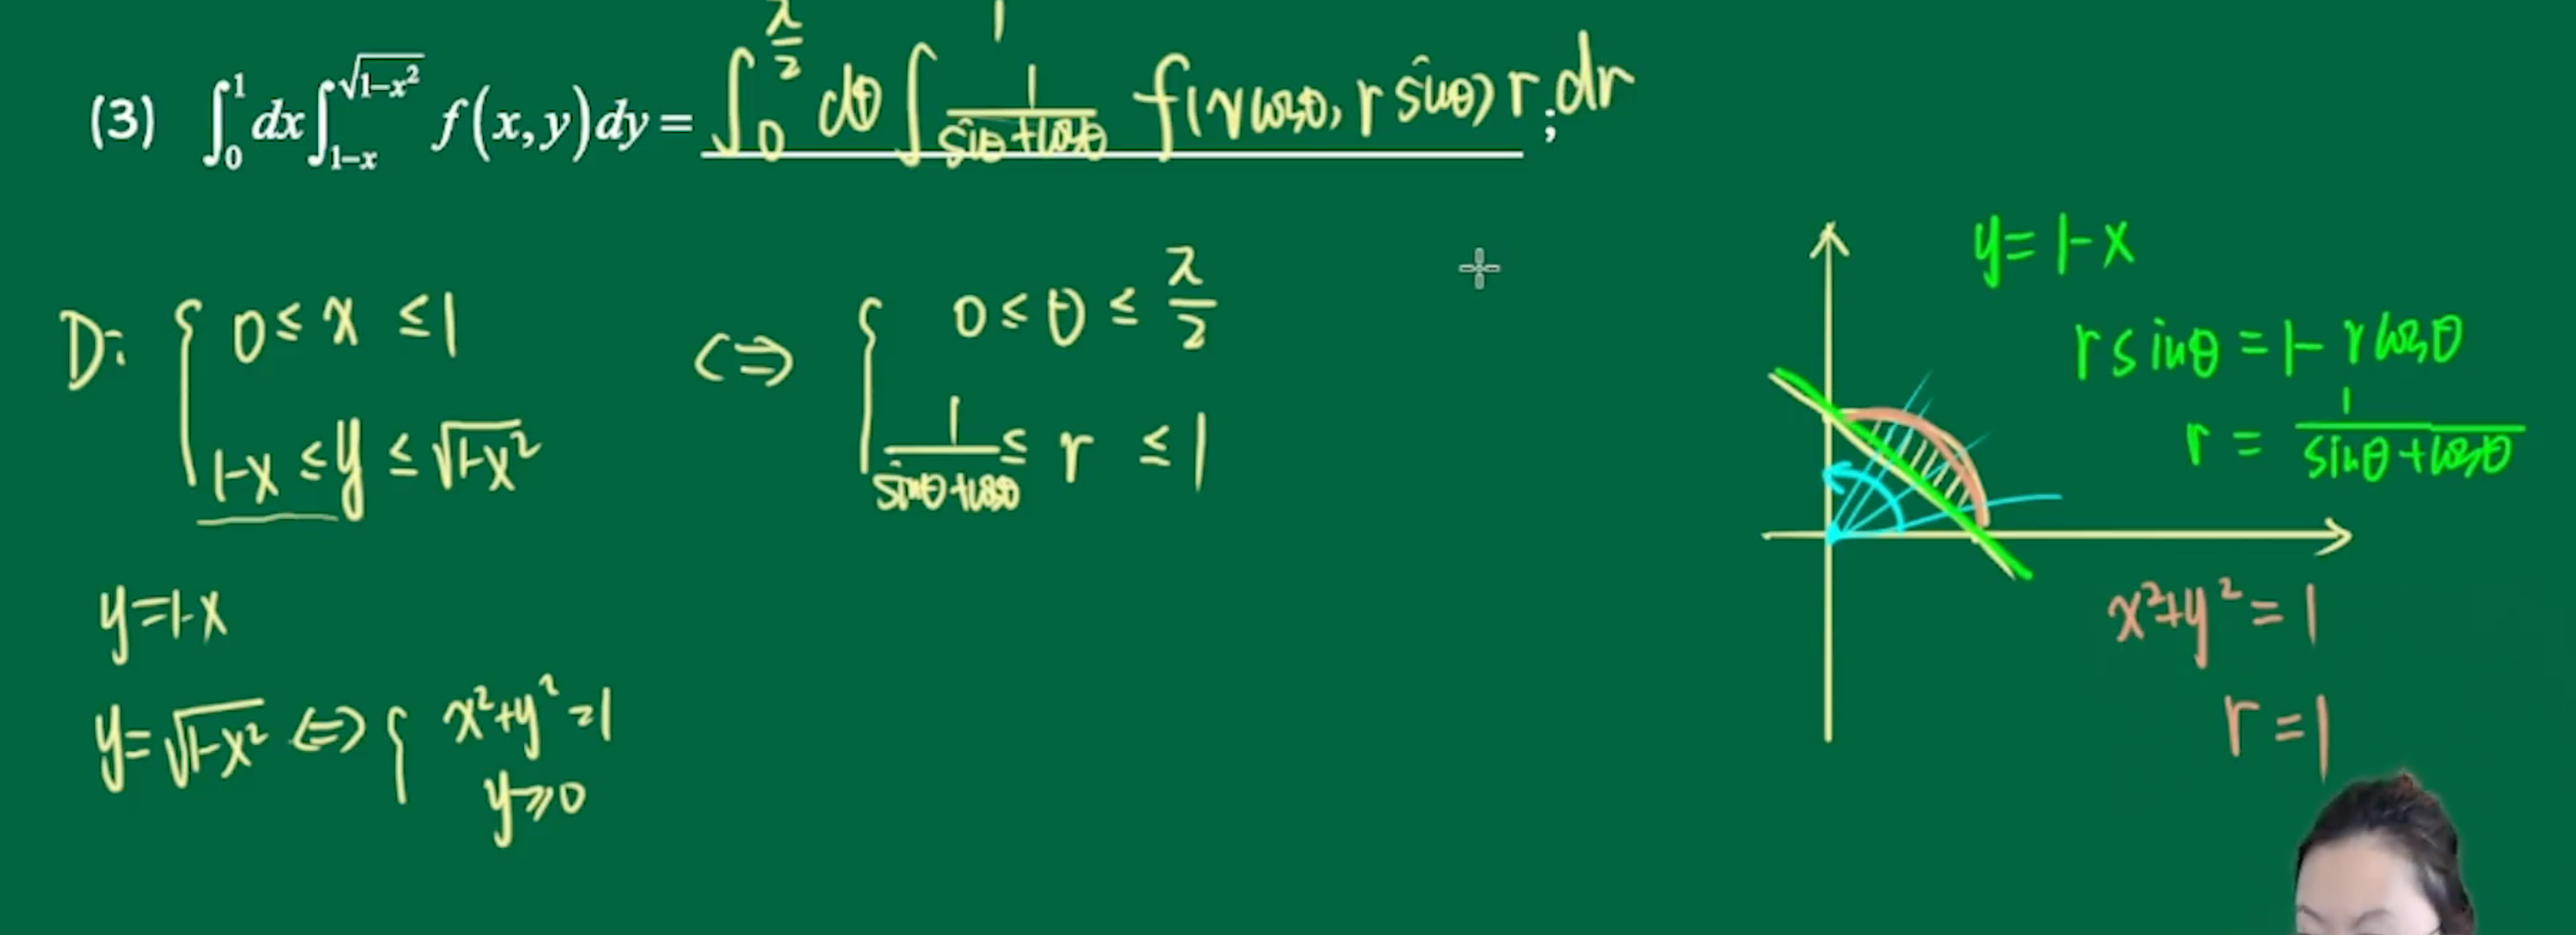 (3) ∫₀¹ dx ∫_{1-x}^{√(1-x²)} f(x,y)dy = ∫₀^{π/2} dθ ∫_{1/(sinθ+cosθ)}^{1} f(rcosθ, rsinθ) r dr ;
D: { 0 ≤ x ≤ 1
1-x ≤ y ≤ √(1-x²)
<=> { 0 ≤ θ ≤ π/2
1/(sinθ+cosθ) ≤ r ≤ 1
y=1-x
y=√(1-x²) <=> { x²+y²=1
y⩾0
y=1-x
rsinθ=1-rcosθ
r = 1/(sinθ+cosθ)
x²+y²=1
r=1